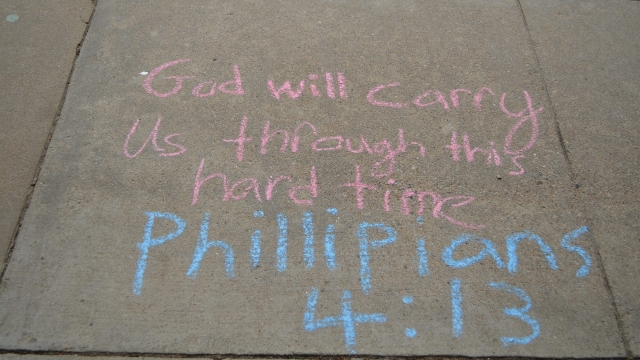 God will carry
Us through this
hard time
Phillipians
4:13